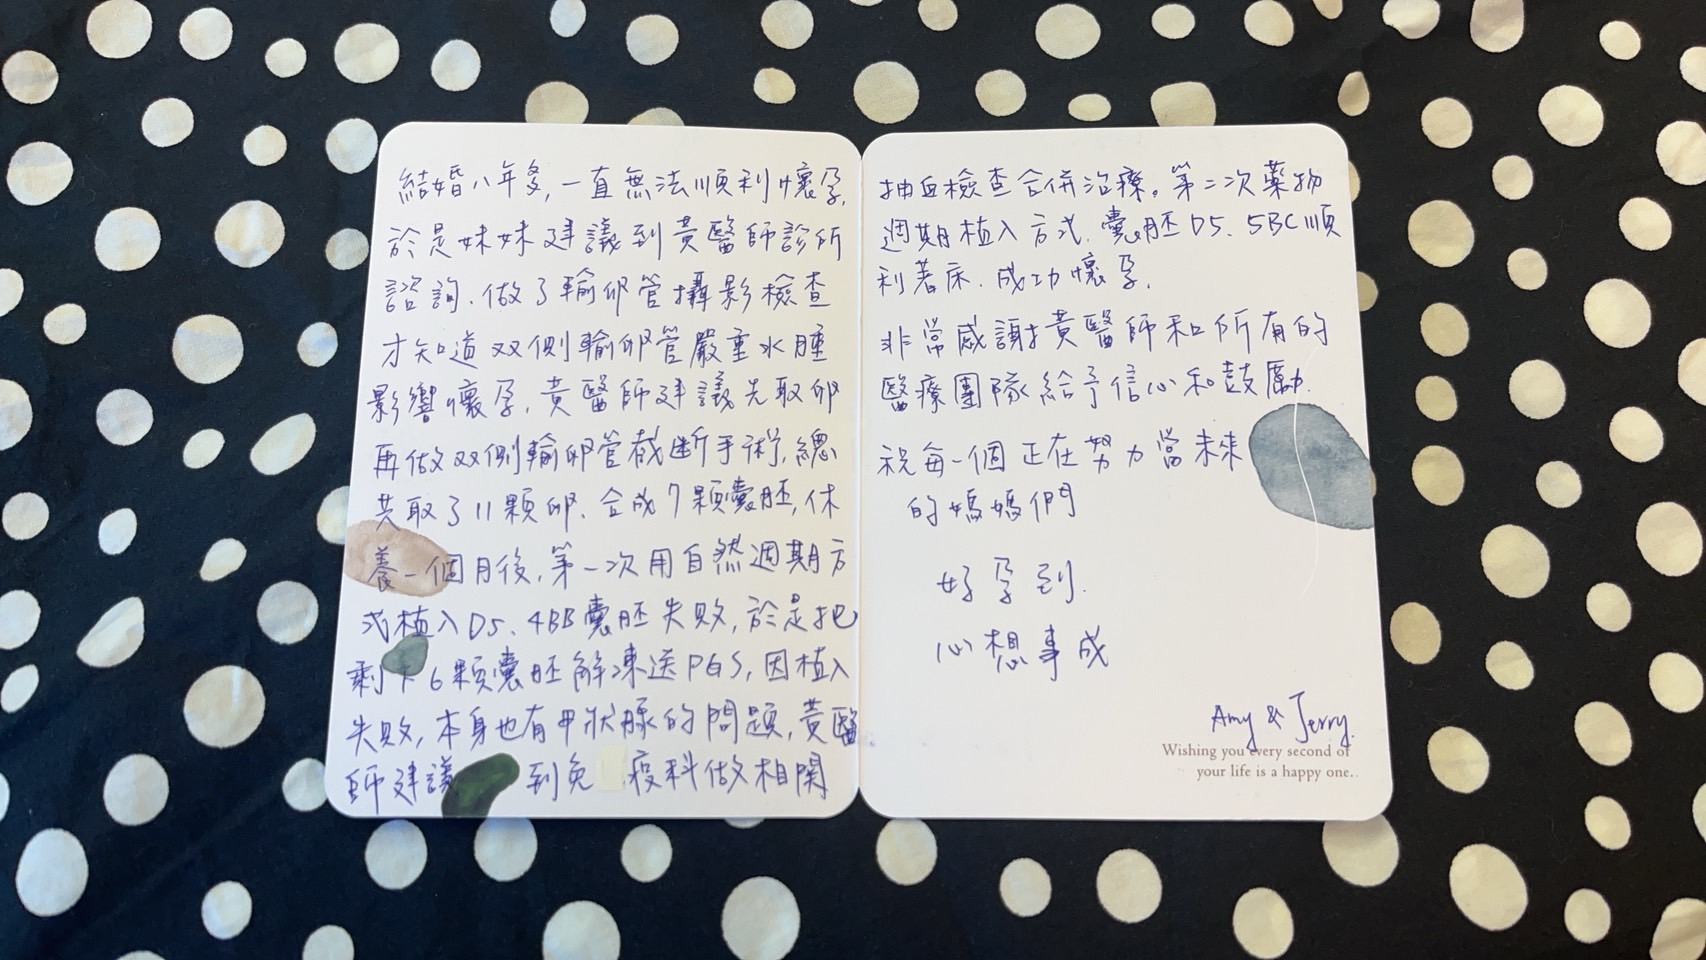 結婚八年多，一直無法順利懷孕，
於是妹妹建議到黃醫師診所
諮詢．做了輸卵管攝影檢查
才知道双側輸卵管嚴重水腫
影響懷孕，黃醫師建議先取卵
再做双側輸卵管截斷手術，總
共取了11顆卵、合成7顆囊胚，休
養一個月後，第一次用自然週期方
式植入D5、4BB囊胚失敗，於是把
剩下6顆囊胚解凍送PGS，因植入
失敗，本身也有甲狀腺的問題，黃醫
師建議 到免疫科做相關
抽血檢查合併治療。第二次藥物
週期植入方式．囊胚D5、5BC順
利著床．成功懷孕．
非常感謝黃醫師和所有的
醫療團隊給予信心和鼓勵．
祝每一個正在努力當未來
的媽媽們
好孕到．
心想事成
Amy & Jerry.
Wishing you every second of
your life is a happy one..